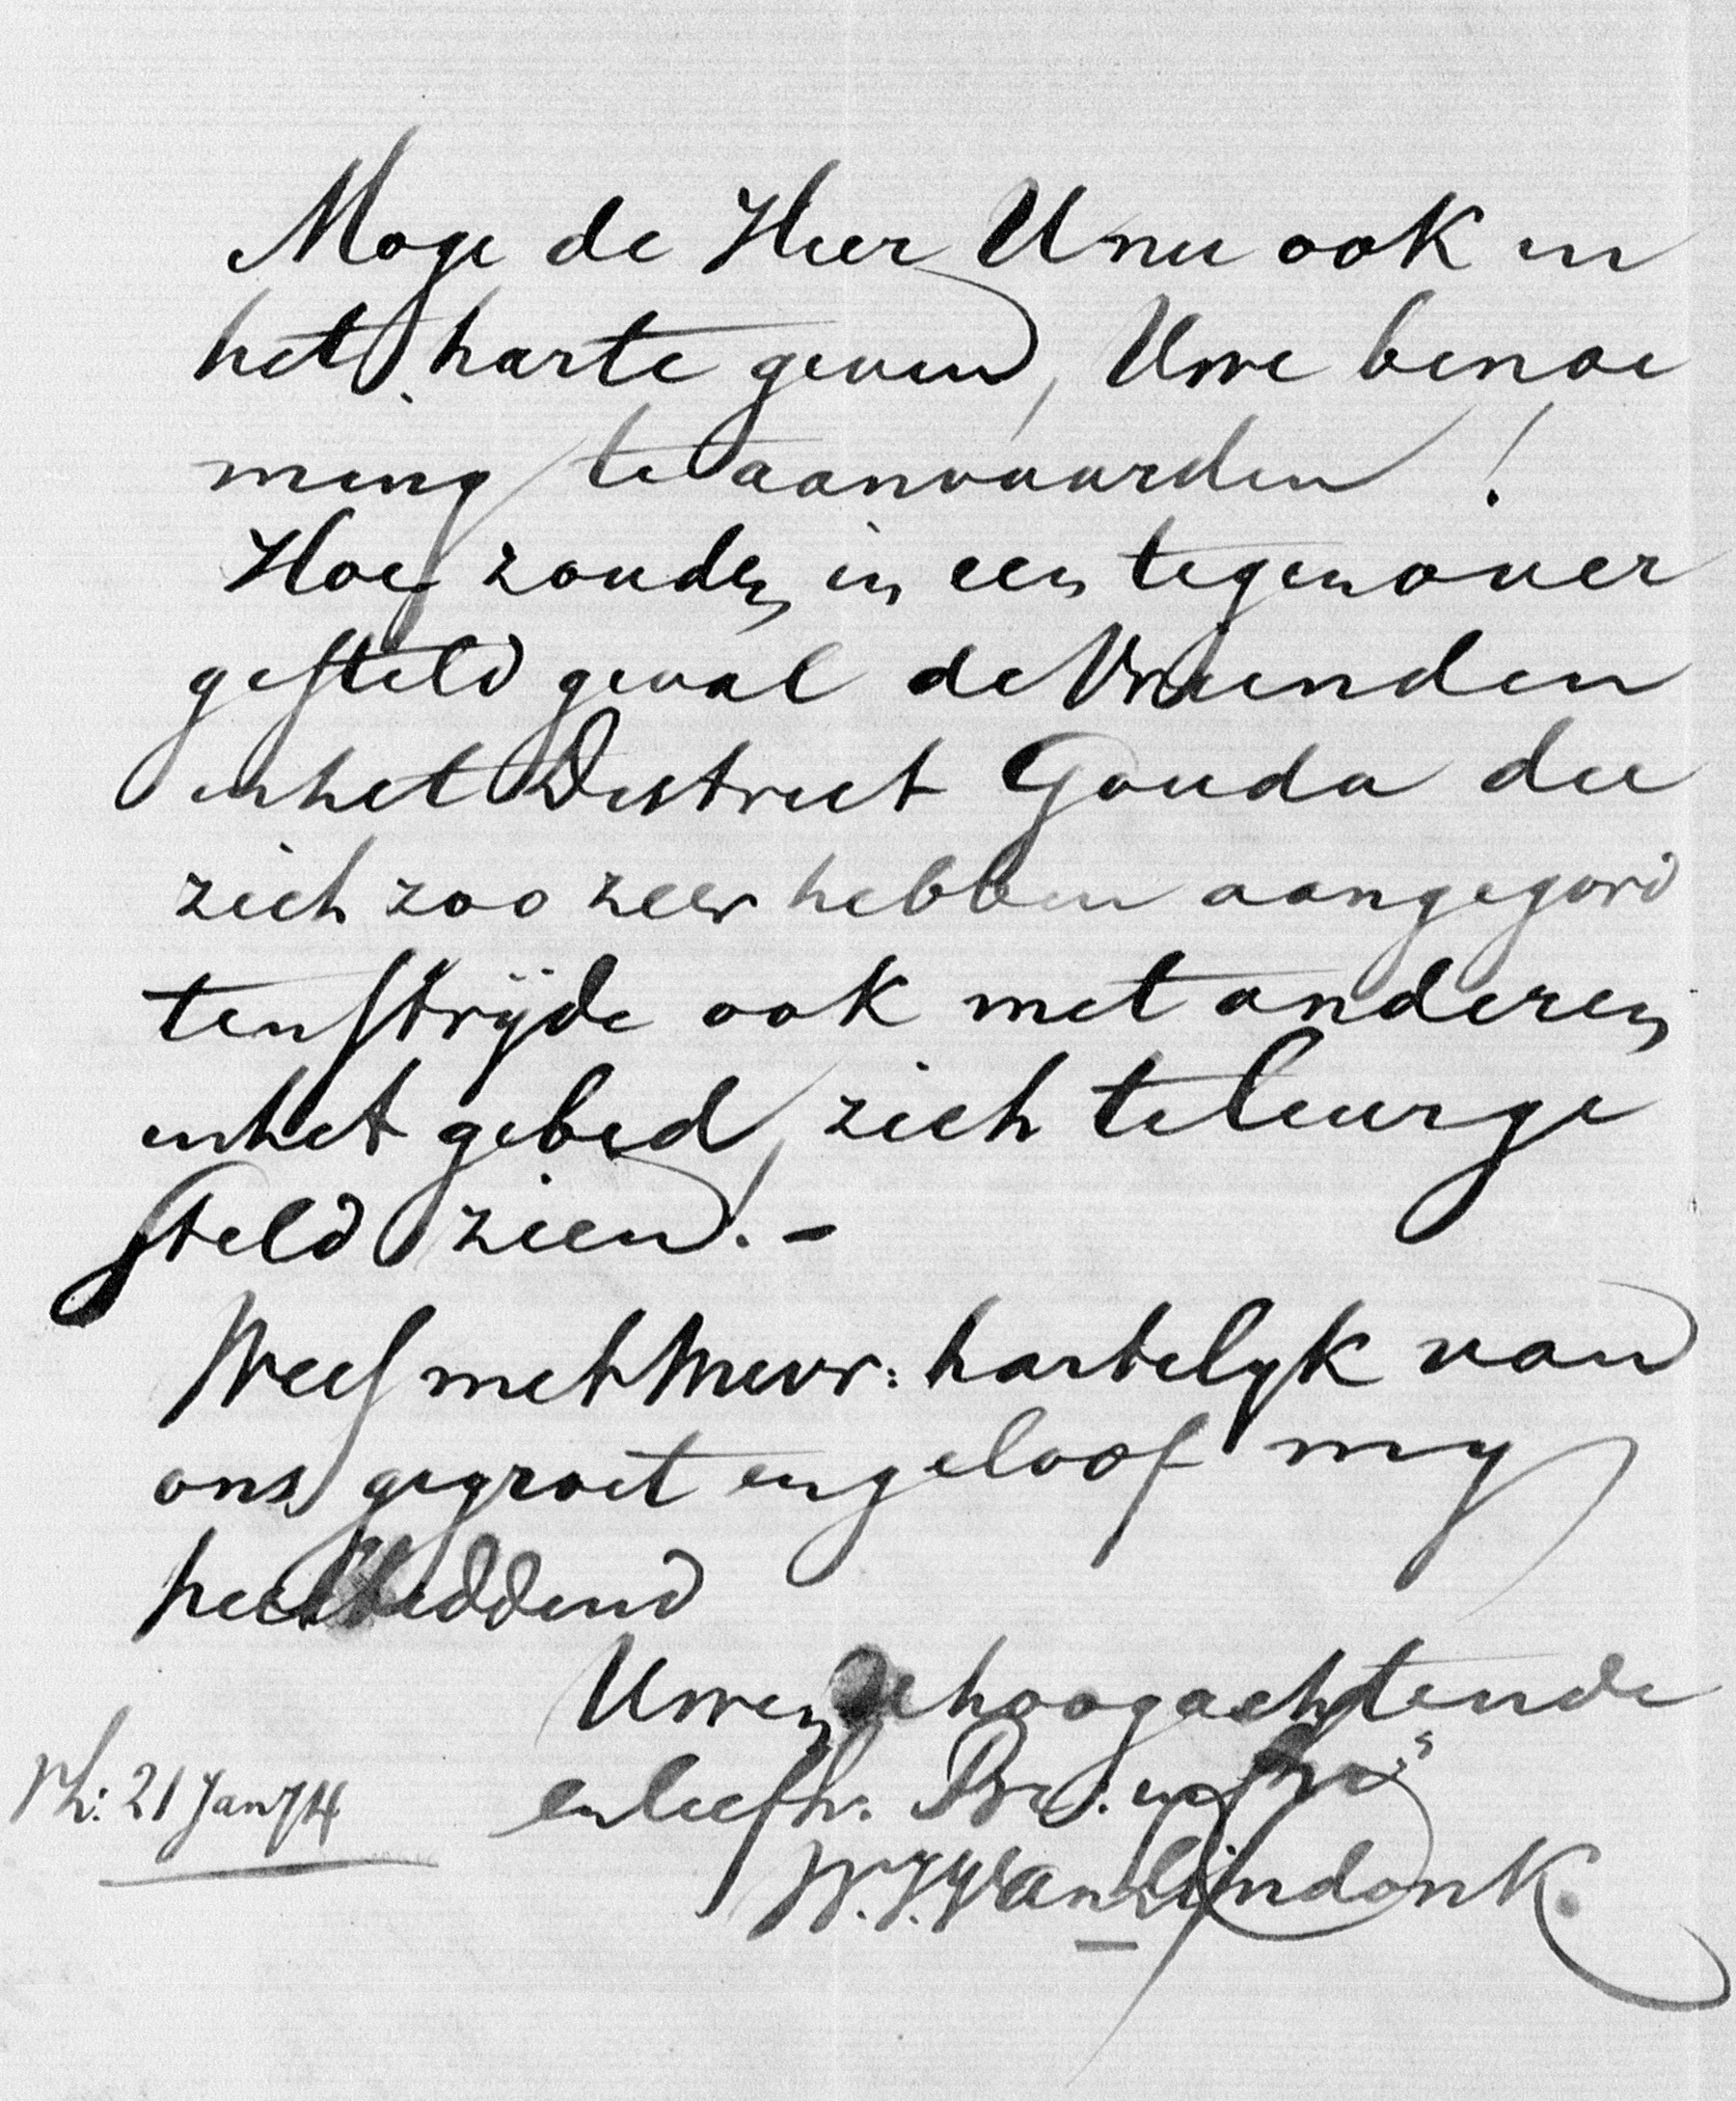 Moge de Heer U nu ook in
het harte geven, Uwe benoe
ming te aanvaarden!
Hoe zouden in een tegenover
gesteld geval de Vrienden
in het District Gouda die
zich zoo zeer hebben aangegord
ten strijde ook met anderen
in het gebed, zich teleurge
steld zien! -
Wees met Mevr: hartelyk van
ons gegroet en geloof my
heilbiddend
Uwen hoogachtende
en liefh. Br. en
21 Jan 74
W. J. Van Lijndonk